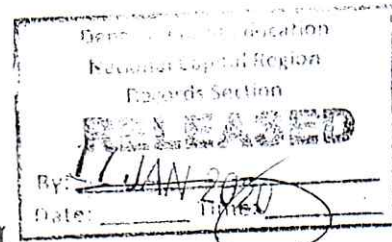 Education
National Capital Region
Records Section
RELEASED
By: 17 JAN 2020
Date: Time: